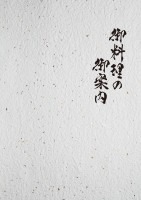 御料理の
御案内